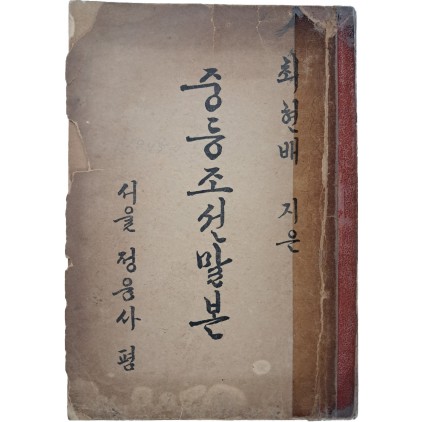 최현배 지은
중등조선말본
서울 정음사 펴